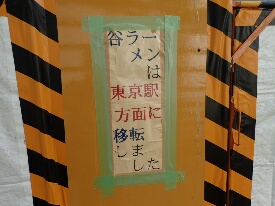 谷ラー
メン
は
東京駅
方面に
移転
しま
した